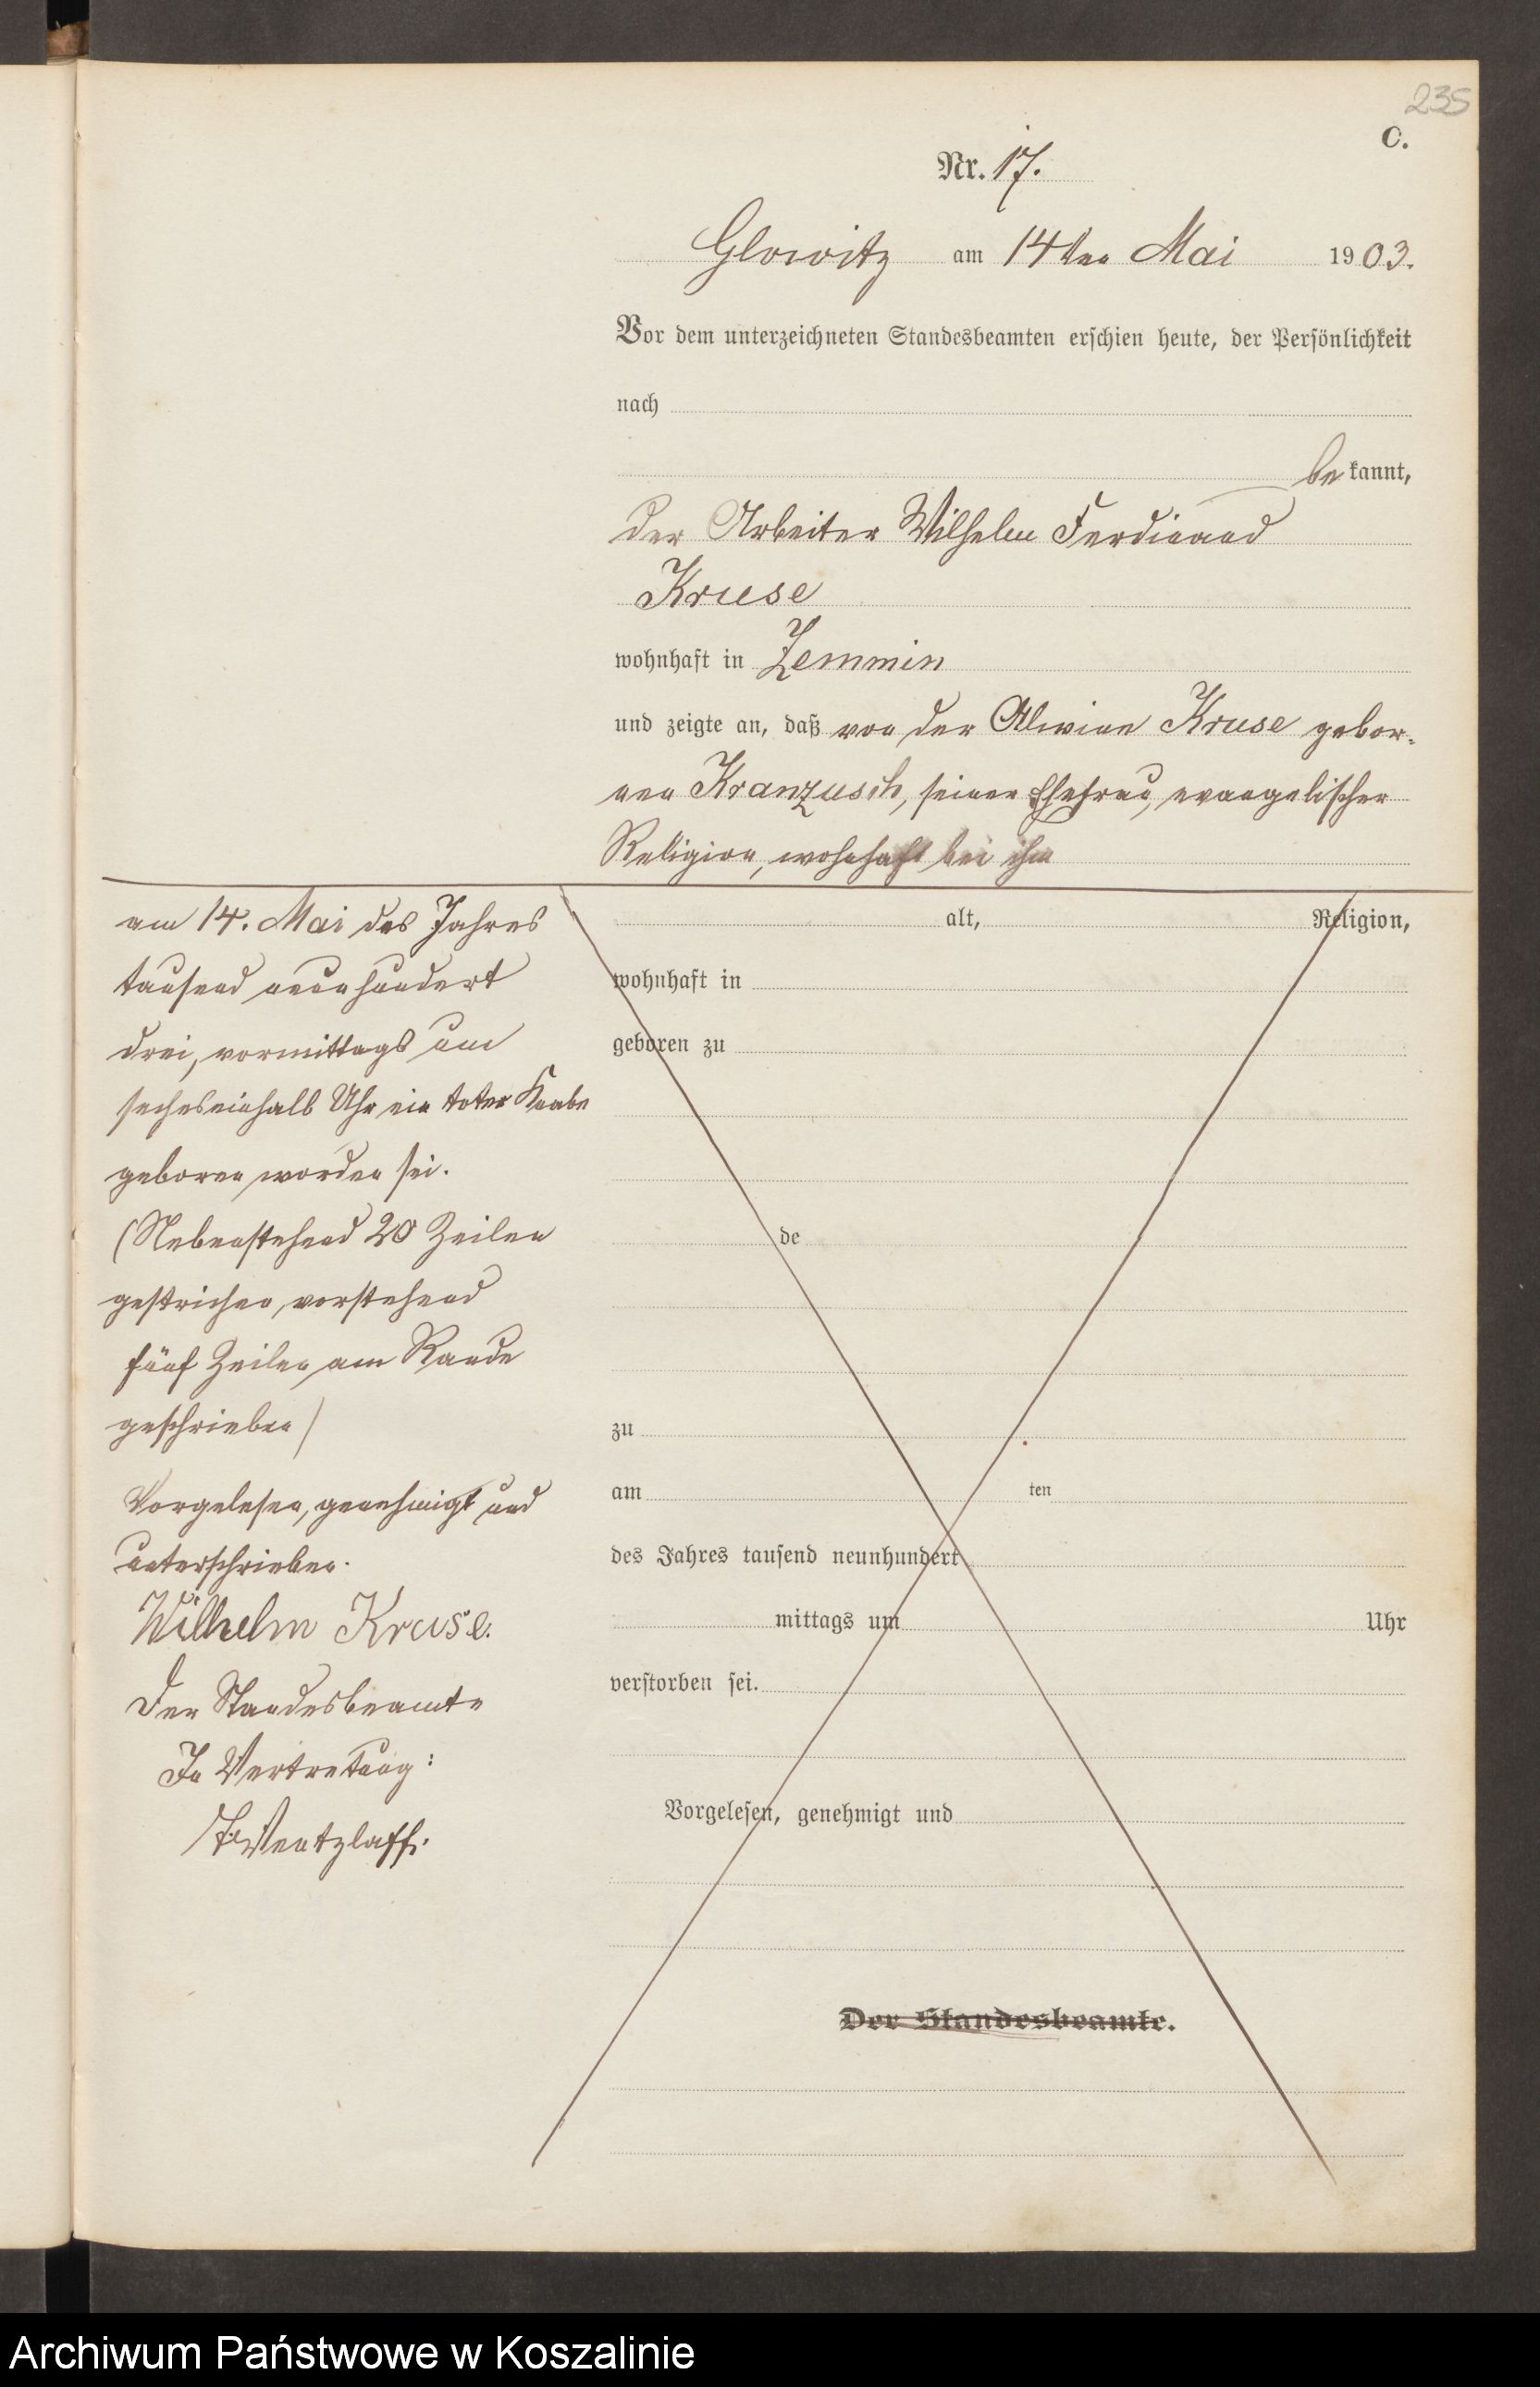 235
C.
Nr. 17.
Glowitz am 14ten Mai 1903.
Vor dem unterzeichneten Standesbeamten erschien heute, der Persönlichkeit
nach
be kannt,
der Arbeiter Wilhelm Ferdinand
Kruse
wohnhaft in Zemmin
und zeigte an, daß von der Alwine Kruse gebor-
nen Kranzusch, seiner Ehefrau, evangelischer
Religion, wohnhaft bei ihm
am 14. Mai des Jahres
tausend neunhundert
drei, vormittags um
sechseinhalb Uhr ein toter Knabe
geboren worden sei.
(Nebenstehend 20 Zeilen
gestrichen, vorstehend
fünf Zeilen am Rande
geschrieben)
Vorgelesen, genehmigt und
unterschrieben.
Wilhelm Kruse.
Der Standesbeamte
In Vertretung:
Wentzlaff.
alt, Religion,
wohnhaft in
geboren zu
de
zu
am ten
des Jahres tausend neunhundert
mittags um Uhr
verstorben sei.
Vorgelesen, genehmigt und
Der Standesbeamte.
Archiwum Państwowe w Koszalinie